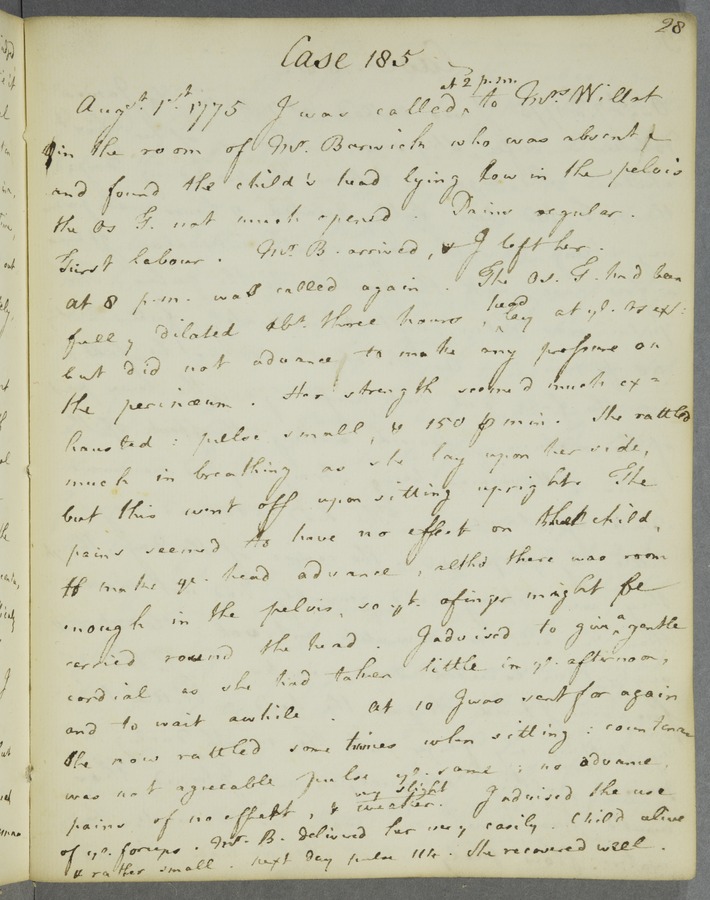 28
Case 185
at 2 p.m.
Augst. 1st 1775 I was called to Mrs Willat
in the room of Mr. Barwick who was absent
and found the child's head lying low in the pelvis
the Os T. not much opened. Pains regular.
First labour. Mr B. arrived, & I left her.
at 8 p.m. was called again. The Os. T. had been
fully dilated abt. three hours, head lay at ye. os ext:
but did not advance to make any pressure on
the perinæum. Her strength seemed much ex=
hausted: pulse small, & 150 p min. She rattled
much in breathing as she lay upon her side,
but this went off upon sitting upright. The
pains seemed to have no effect on the child,
to make ye. head advance, altho there was room
enough in the pelvis, so yt. a finger might be
carried round the head. I advised to give a gentle
cordial as she had taken little in ye. afternoon,
and to wait awhile. At 10 I was sent for again
She now rattled some times when sitting: countenance
was not agreeable pulse ye. same: no advance.
pains of no effect, & very slight weaker. I advised the use
of ye. forceps. Mr. B. delivered her very easily. Child alive
& rather small. next day pulse 114. She recovered well.